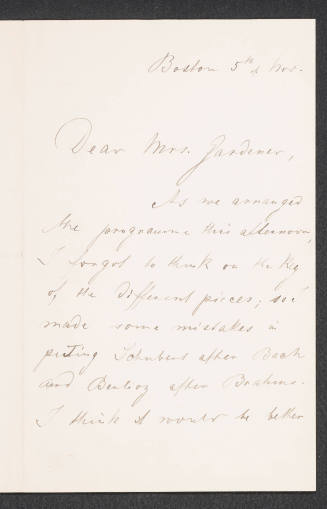 Boston 5th of Nov.
Dear Mrs. Gardener,
As we arranged
the programme this afternoon,
I forgot to think on the key
of the different pieces; so I
made some mistakes in
puting Schubert after Bach
and Berlioz after Brahms.
I think it would be better